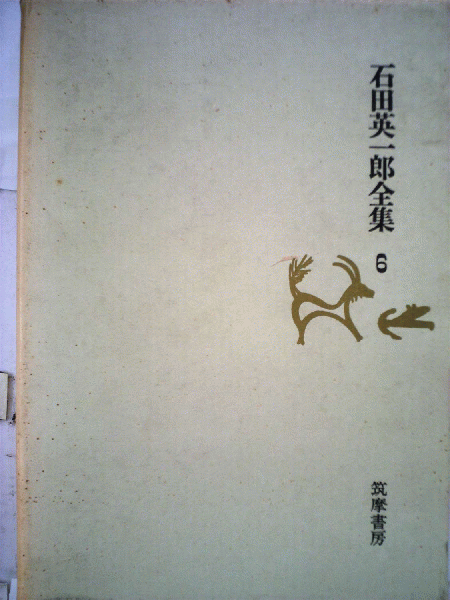 石田英一郎全集 6
筑摩書房